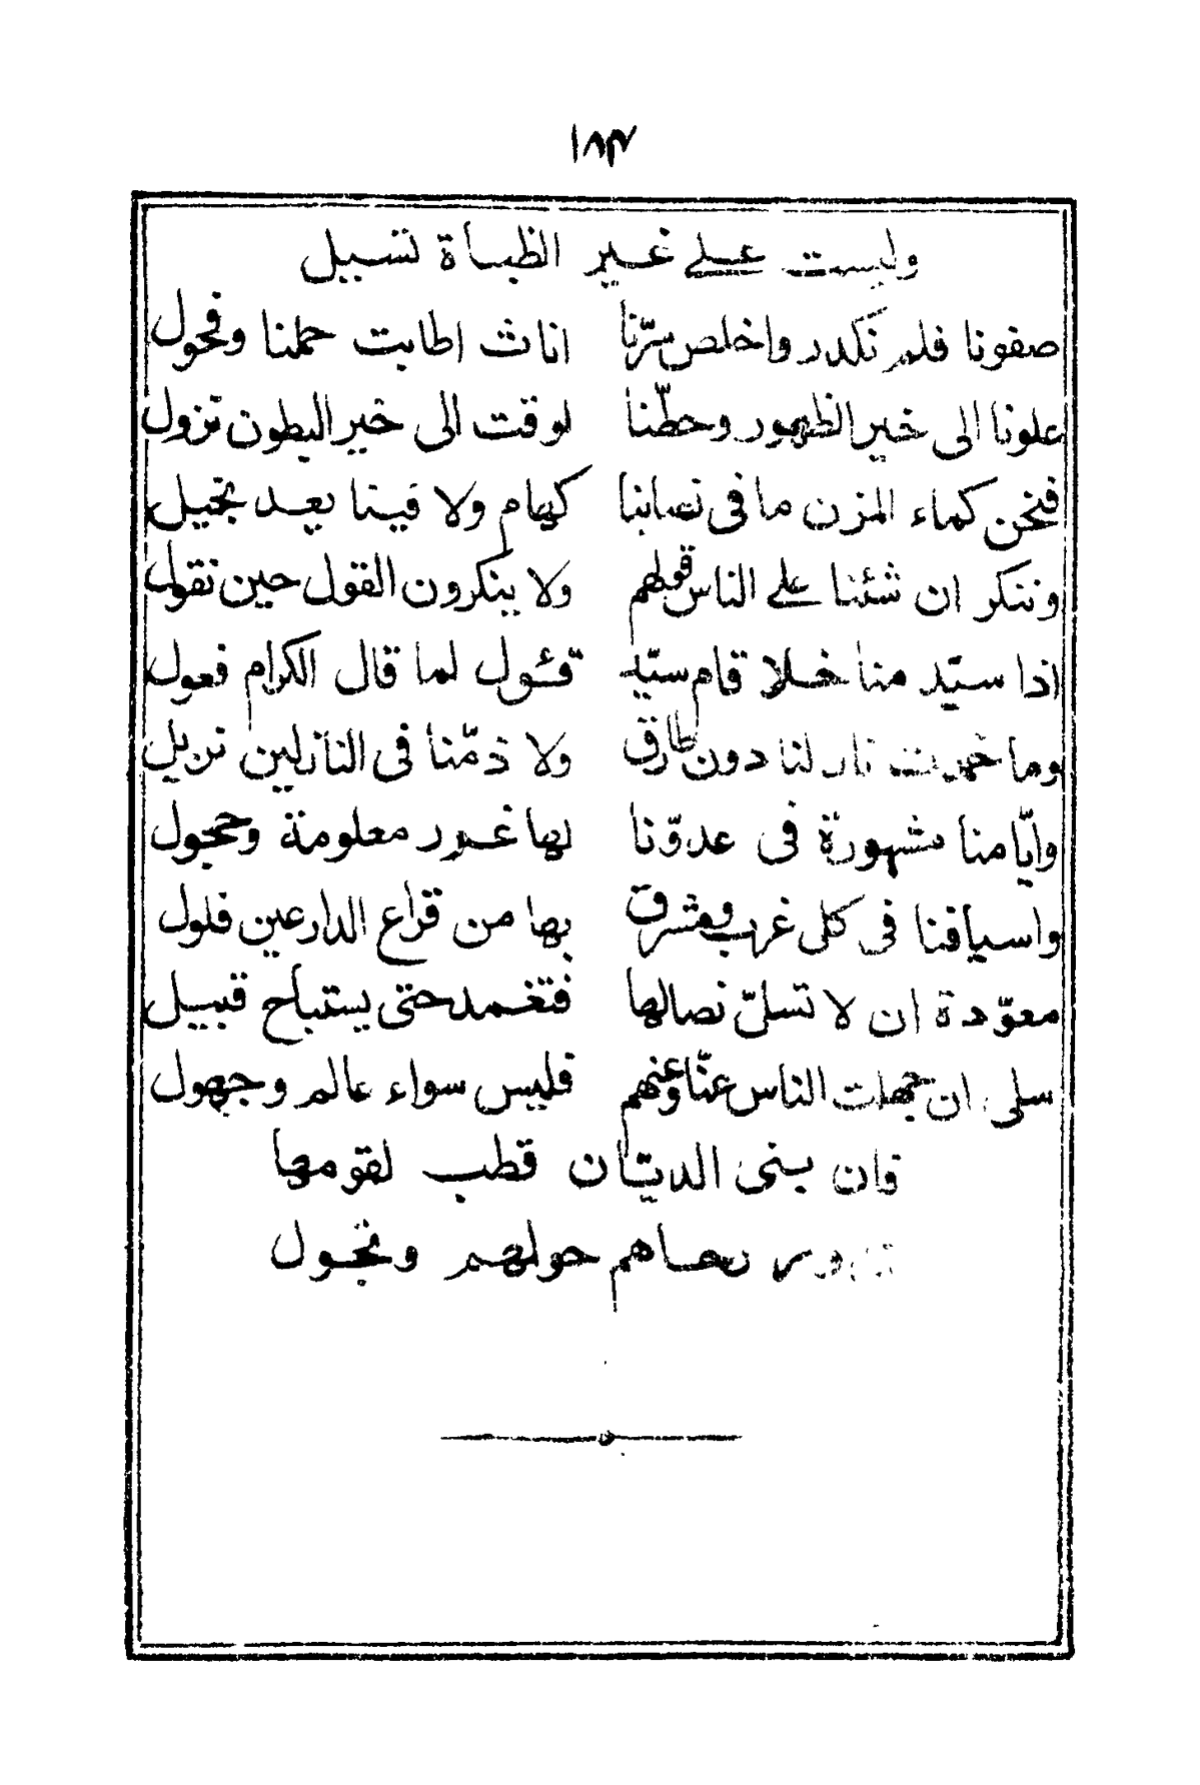 ١٨٣
وليست على غير الظباة تسيل
صفونا فلم نكدر واخلص سرّنا اناث اطابت حملنا وفحول
علونا الى خير الظهور وحطّنا لوقت الى خير البطون نزول
فنحن كماء المزن ما فى نصابنا كهام ولا فينا يعد بخيل
وننكر ان شئنا على الناس قولهم ولا ينكرون القول حين نقول
اذا سيّد منا خلا قام سيّد قئول لما قال الكرام فعول
وما خمدت نار لنا دون طارق ولا ذمّنا فى النازلين نزيل
وايّامنا مشهورة فى عدوّنا لها غرر معلومة وحجول
واسيافنا فى كل غرب ومشرق بها من قراع الدارعين فلول
معوّدة ان لا تسلّ نصالها فتغمد حتى يستباح قبيل
سلى ان جهلت الناس عنّا وعنهم فليس سواء عالم وجهول
فان بنى الديّان قطب لقومها
تدور رحاهم حولهم وتجول